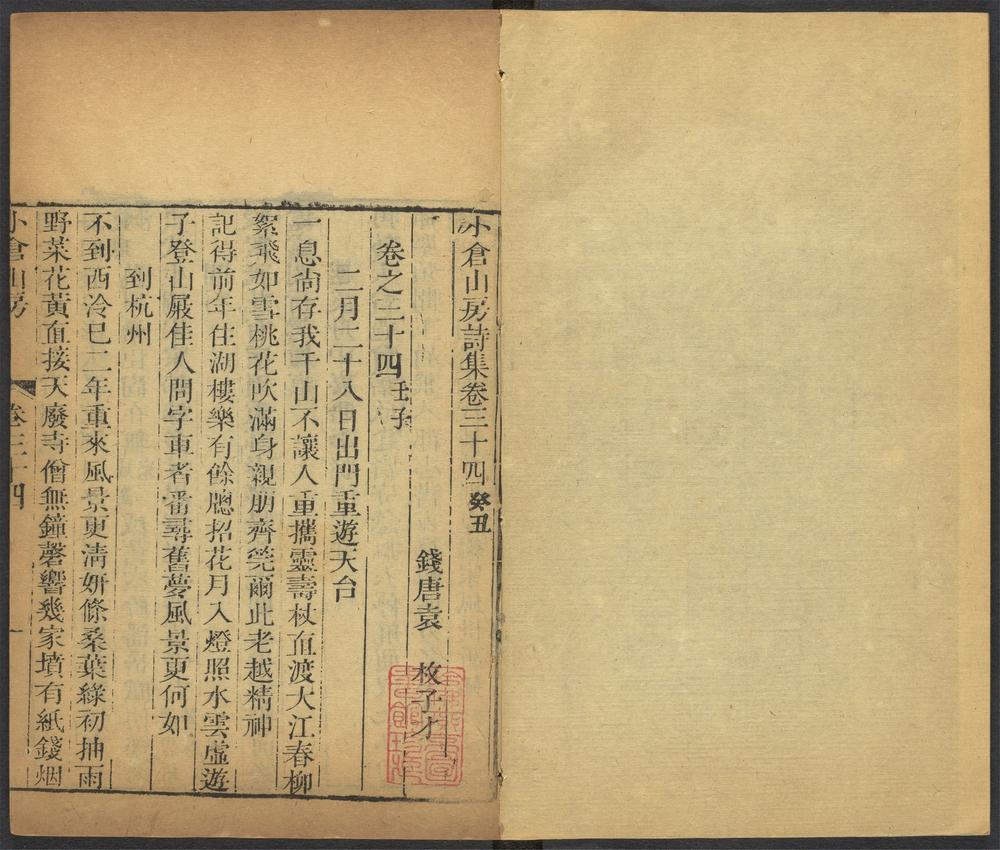 小倉山房詩集卷三十四 癸丑
錢唐袁 枚子才
卷之三十四 壬子
二月二十八日出門重遊天台
一息尙存我千山不讓人重攜靈壽杖直渡大江春柳
絮飛如雪桃花吹滿身親朋齊筦爾此老越精神
記得前年住湖樓樂有餘牕招花月入燈照水雲虛遊
子登山屐佳人問字車者番尋舊夢風景更何如
到杭州
不到西泠已二年重來風景更淸妍條桑葉綠初抽雨
野菜花黃直接天廢寺僧無鐘磬響幾家墳有紙錢烟
小倉山房 卷三十四 一